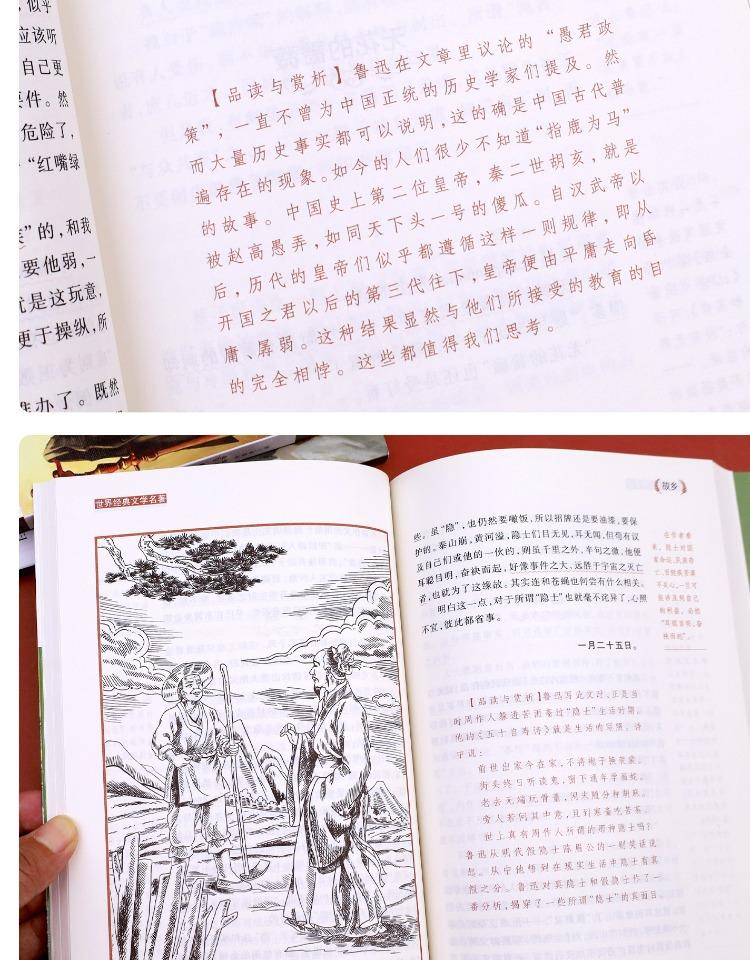 ，似乎
应该听
自己更
件。然
危险了，
“红嘴绿
”的，和我
要他弱，一
就是这玩意，
更于操纵，所
办了。既然
【品读与赏析】鲁迅在文章里议论的“愚君政
策”，一直不曾为中国正统的历史学家们提及。然
而大量历史事实都可以说明，这的确是中国古代普
遍存在的现象。如今的人们很少不知道“指鹿为马”
的故事。中国史上第二位皇帝，秦二世胡亥，就是
被赵高愚弄，如同天下头一号的傻瓜。自汉武帝以
后，历代的皇帝们似乎都遵循这样一则规律，即从
开国之君以后的第三代往下，皇帝便由平庸走向昏
庸、孱弱。这种结果显然与他们所接受的教育的目
的完全相悖。这些都值得我们思考。
世界经典文学名著
故乡
些。虽“隐”，也仍然要噉饭，所以招牌还是要油漆，要保
护的。泰山崩，黄河溢，隐士们目无见，耳无闻，但苟有议
及自己们或他的一伙的，则虽千里之外，半句之微，他便
耳聪目明，奋袂而起，好像事件之大，远胜于宇宙之灭亡
者，也就为了这缘故。其实连和苍蝇也何尝有什么相关。
明白这一点，对于所谓“隐士”也就毫不诧异了，心照
不宣，彼此都省事。
一月二十五日。
在作者看
来，隐士对国
家命运、民族存
亡、百姓疾苦漠
不关心，一旦可
能涉及到自己
的利益，必然
“耳聪目明，奋
袂而起”。
【品读与赏析】鲁迅写此文时，正是当
时周作人躲进苦雨斋过“隐士”生活时期。
他的《五十自寿诗》就是生活的写照，诗
中说：
前世出家今在家，不将袍子换袈裟。
街头终日听谈鬼，窗下通年学画蛇。
老去无端玩骨董，闲来随分种胡麻。
旁人若问其中意，且到寒斋吃苦茶。
世上真有周作人所谓的那种隐士吗？
鲁迅从明代假隐士陈眉公的一则笑话说
起，从中他悟到在现实生活中隐士有真
假之分。鲁迅对真隐士和假隐士作了一
番分析，揭穿了一些所谓“隐士”的真面目。